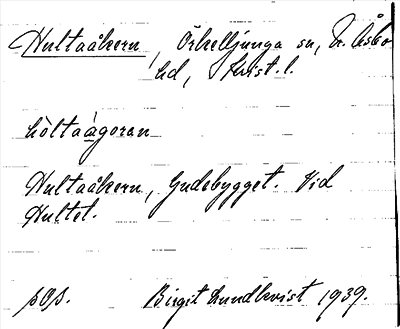 Hultaåkern, Örkelljunga sn, N. Åsbo
hd, Krist. l.
hòltaàgoran
Hultaåkern, Gudebygget. Vid
Hultet.
Birgit Lundkvist 1939.